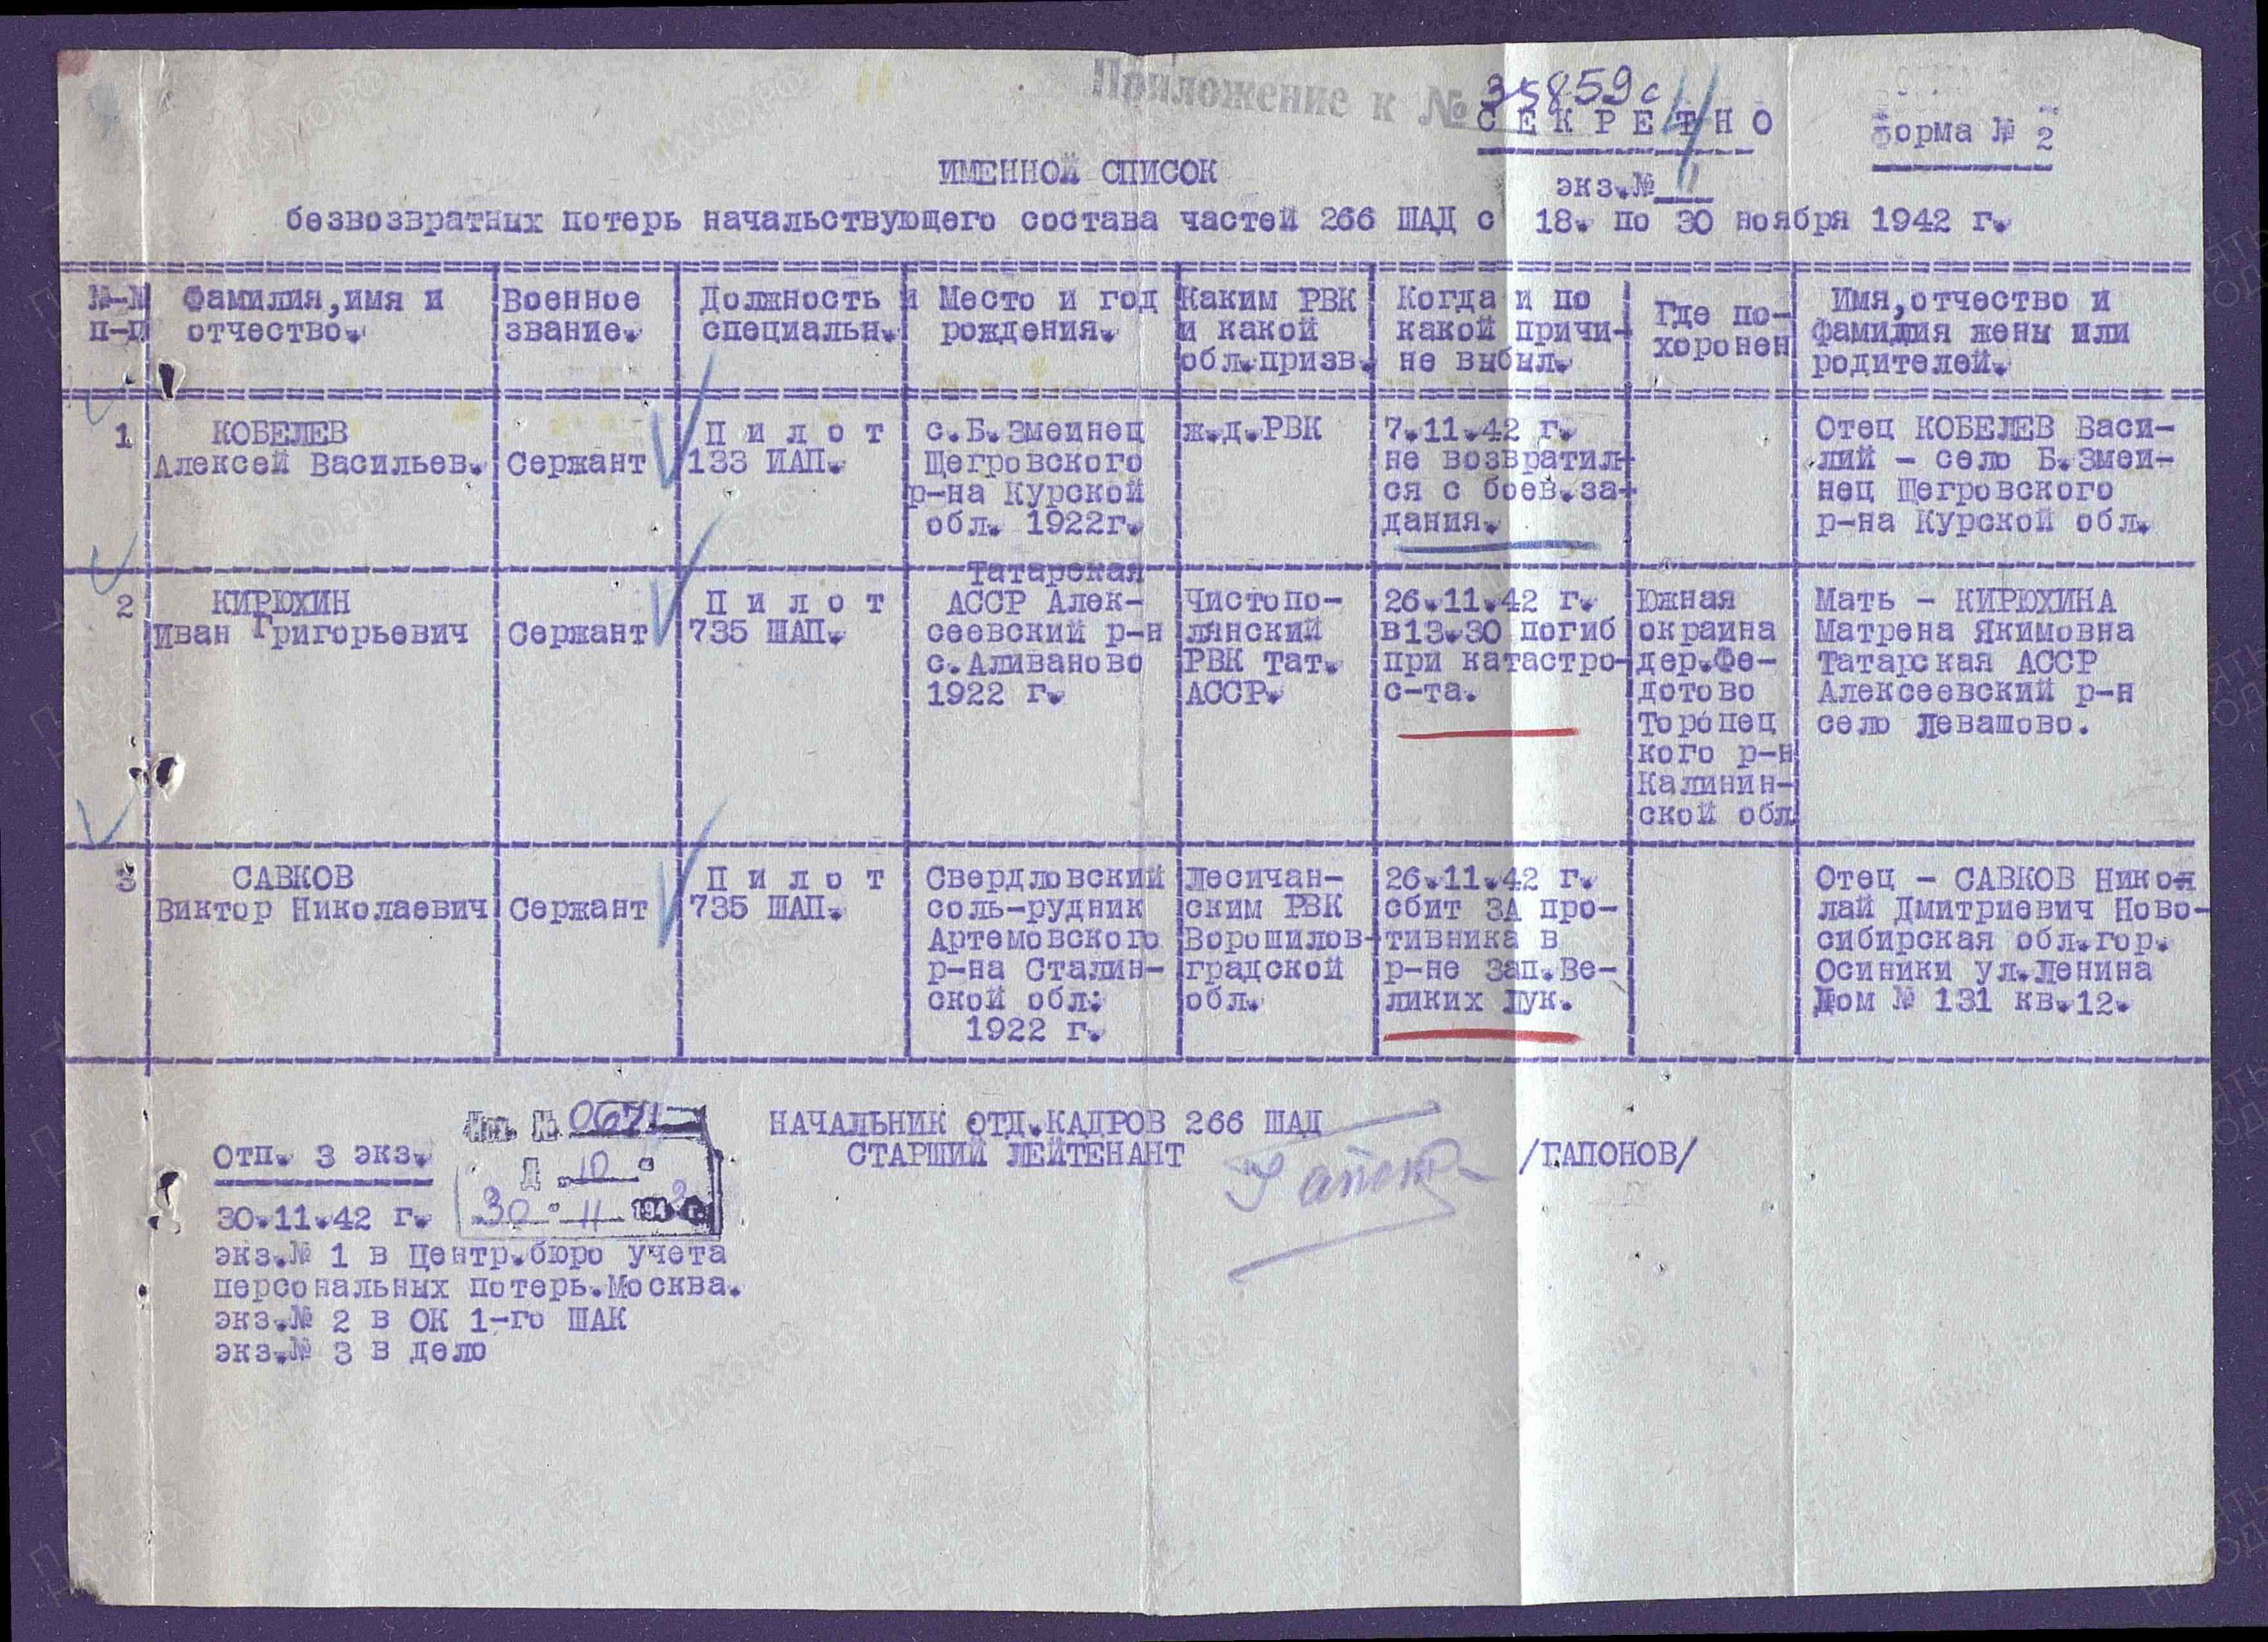 Приложение к № 35859с
4
СЕКРЕТНО
Форма № 2
ИМЕННОЙ СПИСОК
экз.№
безвозвратных потерь начальствующего состава частей 266 ШАД с 18. по 30 ноября 1942 г.
№-№ п-п
Фамилия,имя и
отчество.
Военное
звание.
Должность и
специальн.
Место и год
рождения.
Каким РВК
и какой
обл.призв.
Когда и по
какой причи-
не выбыл.
Где по-
хоронен
Имя,отчество и
фамилия жены или
родителей.
1
КОБЕЛЕВ
Алексей Васильев.
Сержант
Пилот
133 ИАП.
с.Б.Змеинец
Щегровского
р-на Курской
обл. 1922г.
ж.д.РВК
7.11.42 г.
не возвратил-
ся с боев.за-
дания.
Отец КОБЕЛЕВ Васи-
лий - село Б.Змеи-
нец Щегровского
р-на Курской обл.
2
КИРЮХИН
Иван Григорьевич
Сержант
Пилот
735 ШАП.
Татарская
АССР Алек-
сеевский р-н
с.Аливаново
1922 г.
Чистопо-
лянский
РВК Тат.
АССР.
26.11.42 г.
в13.30 погиб
при катастро-
с-та.
Южная
окраина
дер.Фе-
дотово
Торопец
кого р-н
Калинин-
ской обл
Мать - КИРЮХИНА
Матрена Якимовна
Татарская АССР
Алексеевский р-н
село Левашово.
3
САВКОВ
Виктор Николаевич
Сержант
Пилот
735 ШАП.
Свердловский
соль-рудник
Артемовского
р-на Сталин-
ской обл:
1922 г.
Лесичан-
ским РВК
Ворошилов-
градской
обл.
26.11.42 г.
сбит ЗА про-
тивника в
р-не зап.Ве-
ликих Лук.
Отец - САВКОВ Нико-
лай Дмитриевич Ново-
сибирская обл.гор.
Осиники ул.Ленина
Дом № 131 кв.12.
НАЧАЛЬНИК ОТД.КАДРОВ 266 ШАД
СТАРШИЙ ЛЕЙТЕНАНТ
/ГАПОНОВ/
Исх. № 0671
Д „10"
„30" 11 1942 г.
Отп. 3 экз.
30.11.42 г.
экз.№ 1 в Центр.бюро учета
персональных потерь.Москва.
экз.№ 2 в ОК 1-го ШАК
экз.№ 3 в дело